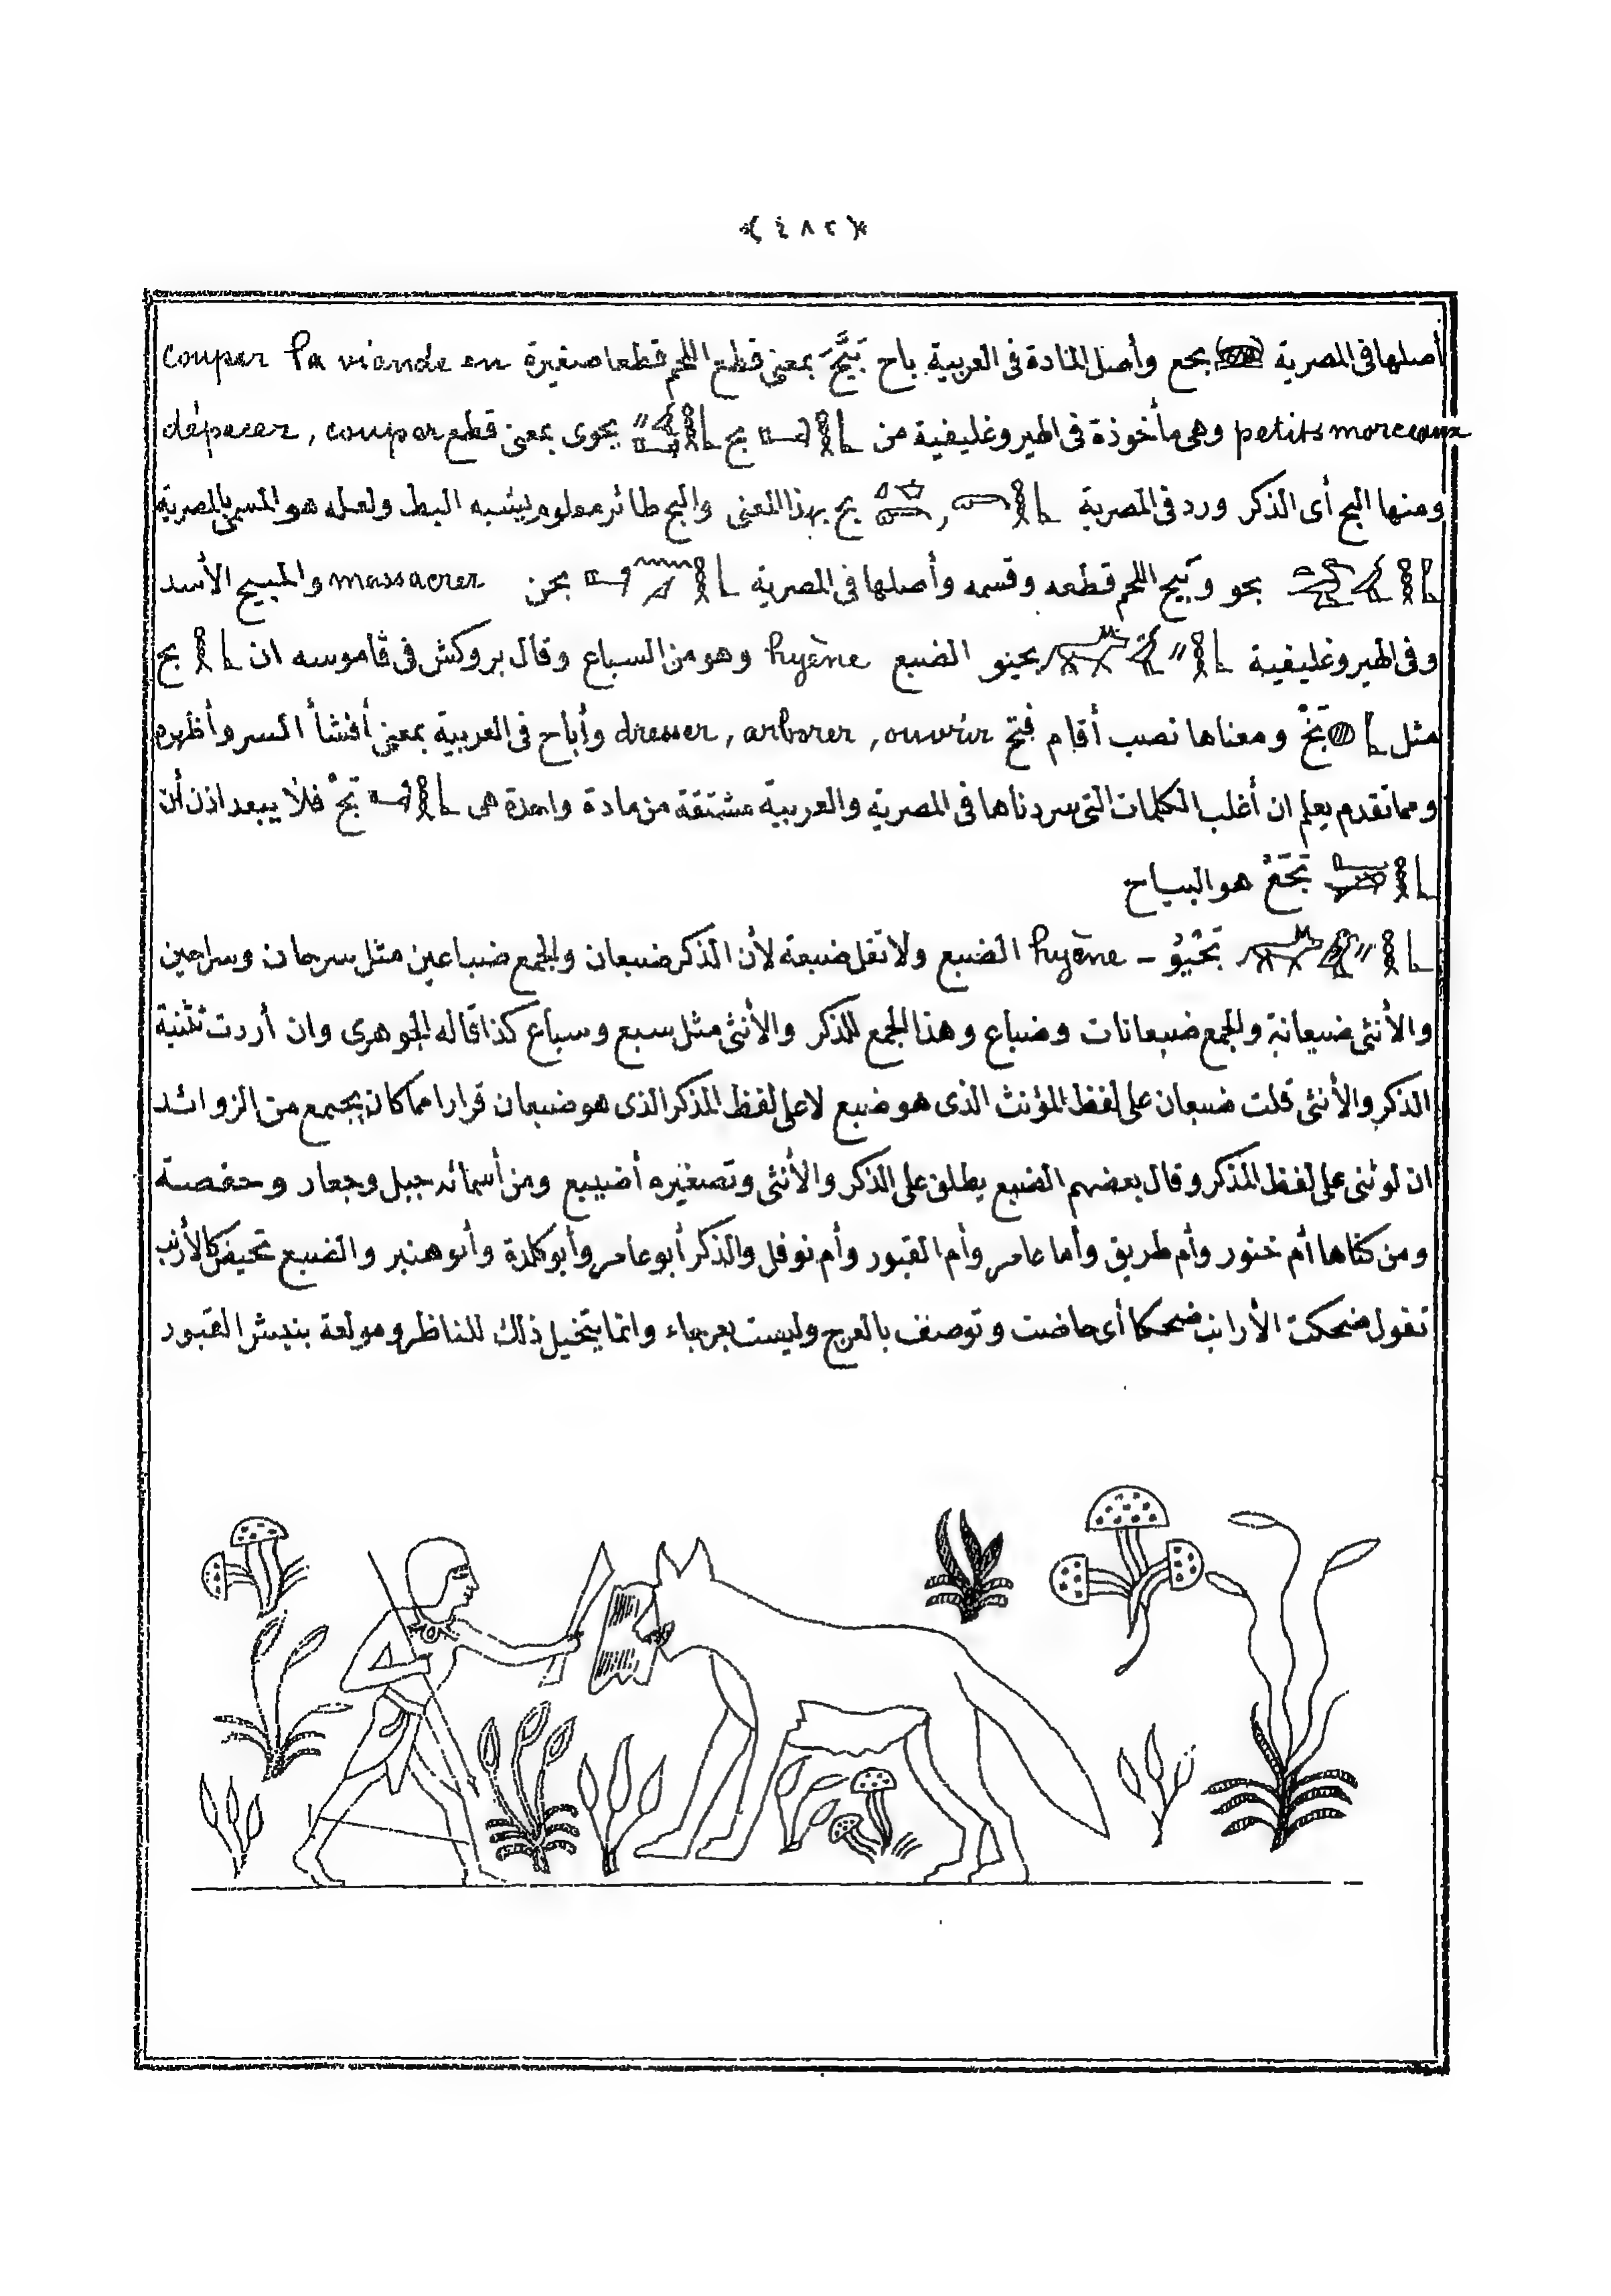 ﴿٤٨٢﴾
أصلها فى المصرية بحع وأصل المادة فى العربية باح بَيَّحَ بمعنى قطع اللحم قطعا صغيرة couper la viande en
petits morceaux وهى مأخوذة فى الهيروغليفية من بح بحوى بمعنى قطع dépecer, couper
ومنها البح أى الذكر ورد فى المصرية بح بهذا المعنى والبح طائر معلوم يشبه البط ولعله هو المسمى بالمصرية
بحو وبيح اللحم قطعه وقسمه وأصلها فى المصرية بحن massacrer والمبيح الأسد
وفى الهيروغليفية بحيتو الضبع hyène وهو من السباع وقال بروكش فى قاموسه ان بح
مثل بَخْ ومعناها نصب أقام فتح dresser, arborer, ouvrir وأباح فى العربية بمعنى أفشأ السر وأظهره
ومما تقدم يعلم ان أغلب الكلمات التى سردناها فى المصرية والعربية مشتقة من مادة واحدة هى بَحْ فلا يبعد اذن أن
بَحَعْ هو البياح
بَحْيتُو - hyène الضبع ولا تقل ضبعة لأن الذكر ضبعان والجمع ضباعين مثل سرحان وسراحين
والأنثى ضبعانة والجمع ضبعانات وضباع وهذا الجمع للذكر والأنثى مثل سبع وسباع كذا قاله الجوهرى وان أردت تثنية
الذكر والأنثى قلت ضبعان على لفظ المؤنث الذى هو ضبع لا على لفظ المذكر الذى هو ضبعان قرارا مما كان يجتمع من الزوائد
ان لو ثنى على لفظ المذكر وقال بعضهم الضبع يطلق على الذكر والأنثى وتصغيره أضيبع ومن أسمائه جيل وجعار وحفصة
ومن كناها أم خنور وأم طريق وأما عامر وأم القبور وأم نوفل والذكر أبو عامر وأبو كلدة وأبو هنبر والضبع تحيض كالأرنب
تقول ضحكت الأرانب ضحكا أى حاضت وتوصف بالعرج وليست بعرجاء وانما يتخيل ذلك للناظر ومولعة بنبش القبور